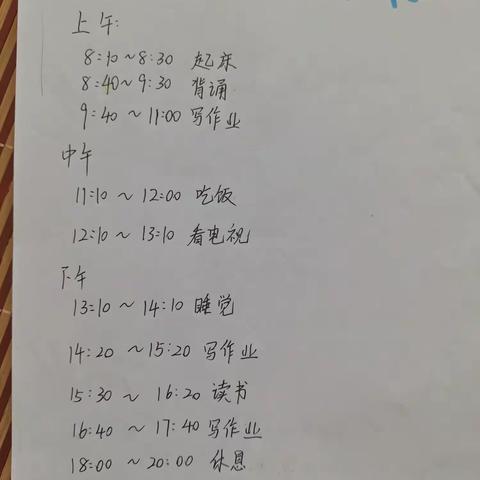 上午:
8:10~8:30 起床
8:40~9:30 背诵
9:40~11:00 写作业
中午
11:10~12:00 吃饭
12:10~13:10 看电视
下午
13:10~14:10 睡觉
14:20~15:20 写作业
15:30~16:20 读书
16:40~17:40 写作业
18:00~20:00 休息